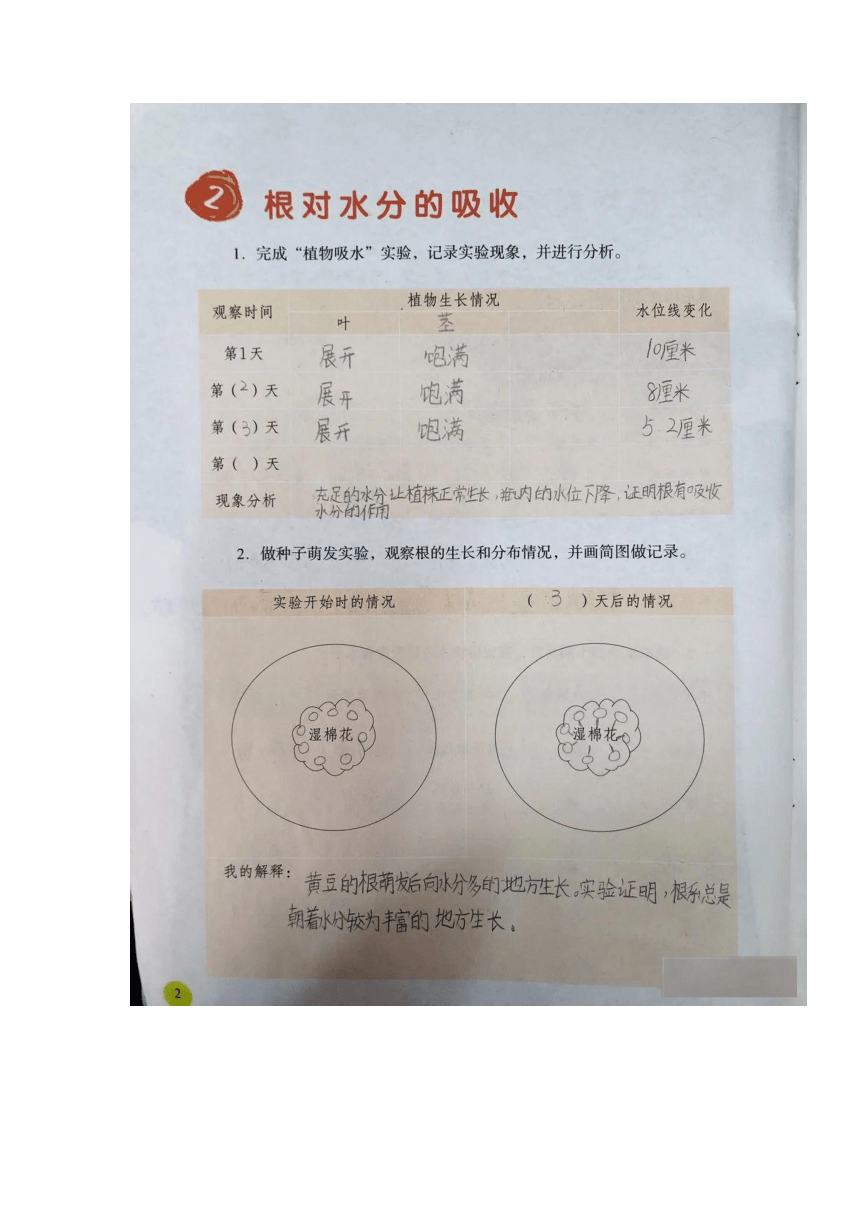 2 根对水分的吸收
1. 完成“植物吸水”实验，记录实验现象，并进行分析。
观察时间 植物生长情况 水位线变化
叶 茎
第1天 展开 饱满 10厘米
第（2）天 展开 饱满 8厘米
第（3）天 展开 饱满 5.2厘米
第（ ）天
现象分析 充足的水分让植株正常生长，瓶内的水位下降，证明根有吸收
水分的作用
2. 做种子萌发实验，观察根的生长和分布情况，并画简图做记录。
实验开始时的情况 （ 3 ）天后的情况
湿棉花 湿棉花
我的解释： 黄豆的根萌发后向水分多的地方生长。实验证明，根系总是
朝着水分较为丰富的地方生长。
2